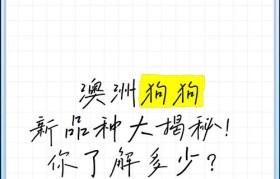 澳洲狗狗
新品种大揭秘!
你了解多少?